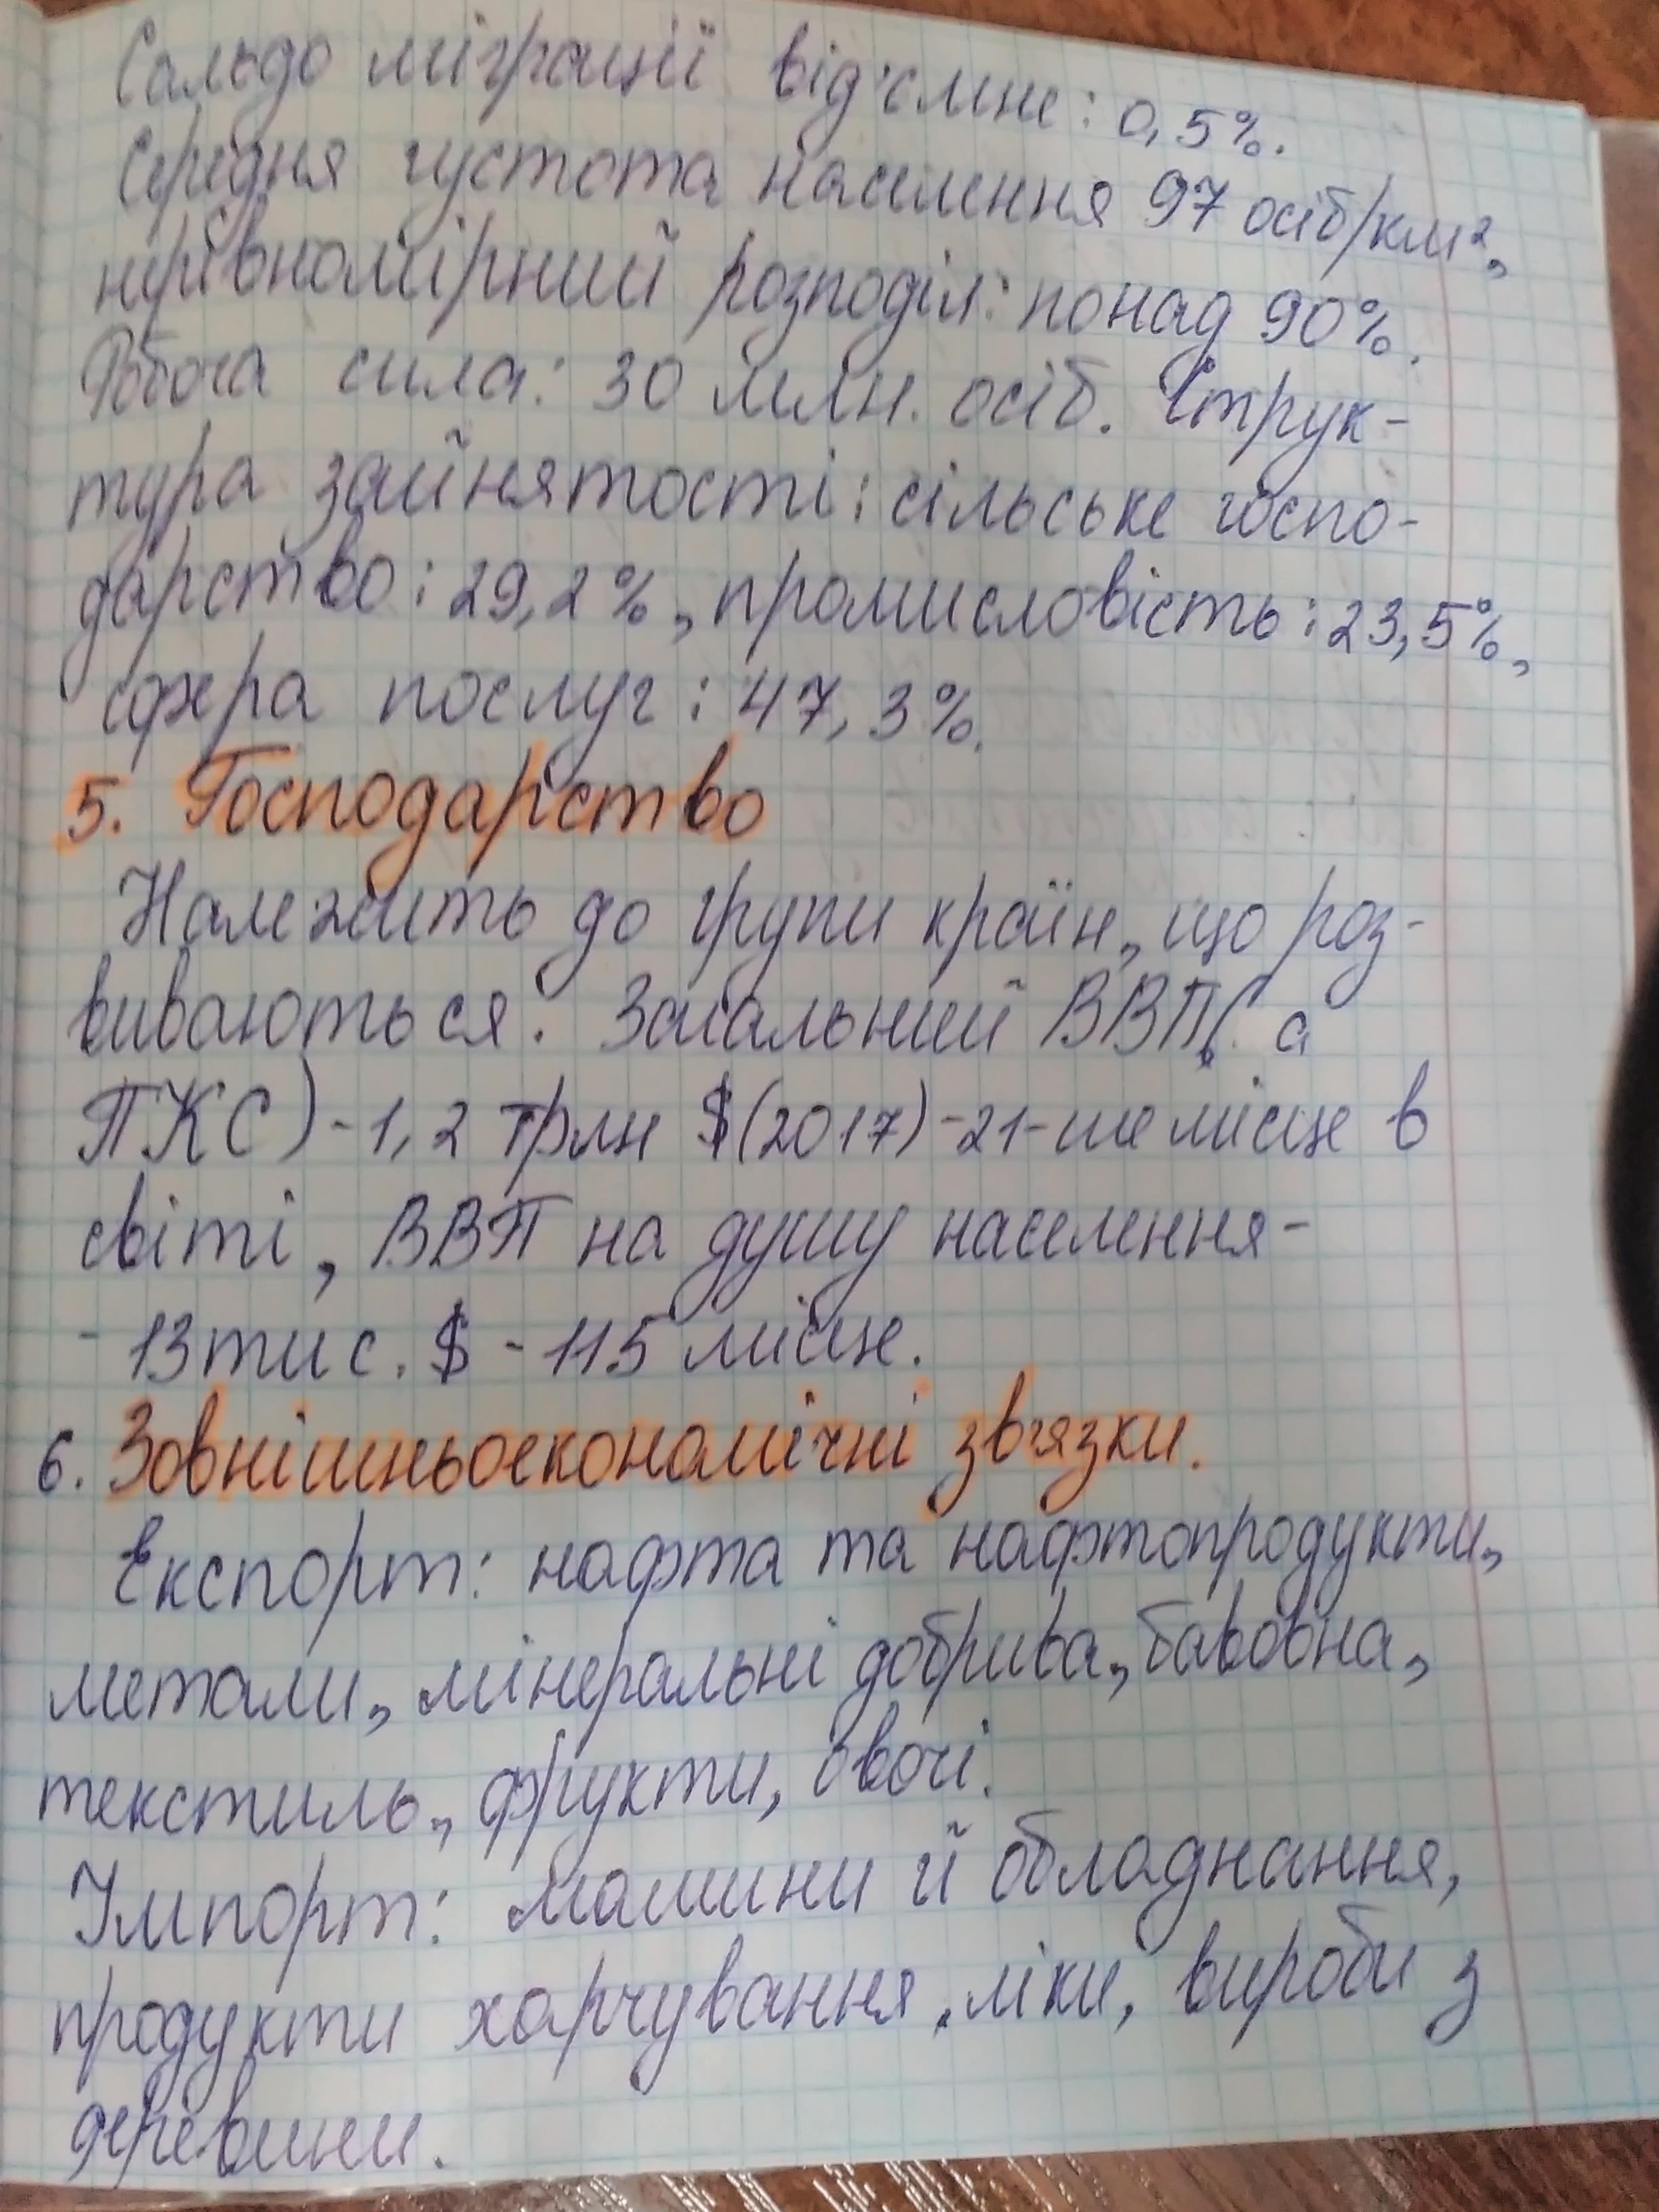 Сальдо міграції від'ємне: 0,5%.
Середня густота населення 97 осіб/км²,
нерівномірний розподіл: понад 90%.
Робоча сила: 30 млн. осіб. Струк-
тура зайнятості: сільське госпо-
дарство: 29,2%, промисловість: 23,5%,
сфера послуг: 47,3%.
5. Господарство
Належить до групи країн, що роз-
виваються. Загальний ВВП( а
ПКС) - 1,2 трлн $(2017) - 21-ше місце в
світі, ВВП на душу населення -
- 13 тис. $ - 115 місце.
6. Зовнішньоекономічні зв'язки.
Експорт: нафта та нафтопродукти,
метали, мінеральні добрива, бавовна,
текстиль, фрукти, овочі.
Імпорт: машини й обладнання,
продукти харчування, ліки, вироби з
деревини.